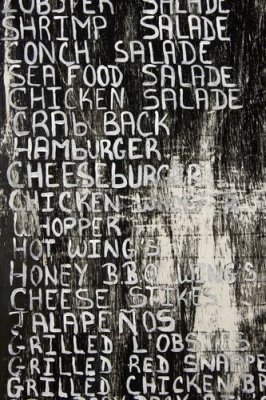 LOBSTER SALADE
SHRIMP SALADE
CONCH SALADE
SEA FOOD SALADE
CHICKEN SALADE
CRAb BACK
HAMbURGER
CHEESEbURGER
CHICKEN
WHOPPER
HOT WING'S
HONEY B.B.Q WING'S
CHEESE STIKES
JALAPEÑOS
GRILLED LOBSTES
GRILLED RED SNAPPE
GRILLED CHICKEN BR